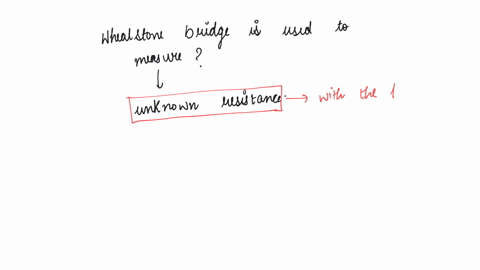 Wheatstone bridge is used to
measure ?
unknown resistance → with the